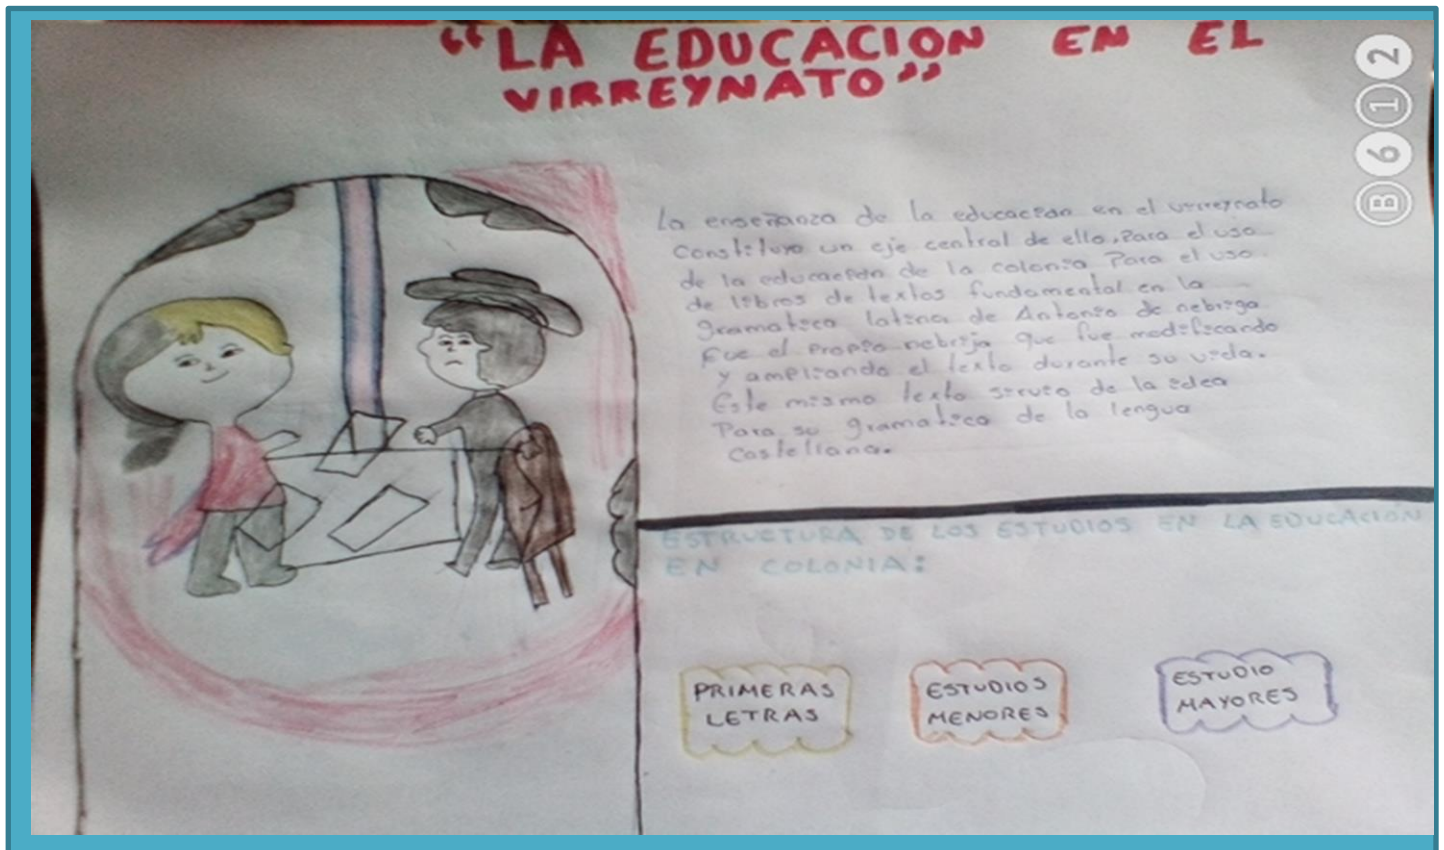 “LA EDUCACION EN EL
VIRREYNATO”
La enseñanza de la educacion en el virreynato
Constituyo un eje central de ello, Para el uso
de la educacion de la colonia Para el uso
de libros de textos fundamental en la
gramatica latina de Antonio de nebriga
Fue el Propio nebrija que fue modificando
y ampliando el texto durante su vida.
Este mismo texto sirvio de la idea
Para su gramatica de la lengua
Castellana.
ESTRUCTURA DE LOS ESTUDIOS EN LA EDUCACION
EN COLONIA:
PRIMERAS
LETRAS
ESTUDIOS
MENORES
ESTUDIO
MAYORES
B612